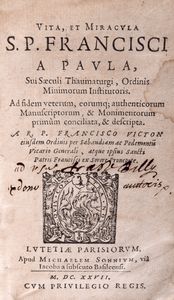 VITA, ET MIRACVLA
S. P. FRANCISCI
A PAVLA,
Sui Sæculi Thaumaturgi, Ordinis
Minimorum Institutoris.
Ad fidem veterum, eorumq; authenticorum
Manuscriptorum, & Monimentorum
primùm conciliata, & descripta.
A R. P. FRANCISCO VICTON
eiusdem Ordinis per Sabaudiam ac Pedemontiũ
Vicario Generali, atque ipsius Sancti
Patris Francisci ex Sorore
ad
LVTETIÆ PARISIORVM,
Apud MICHAELEM SONNIVM, viâ
Iacobæa sub scuto Basileensi.
M. DC. XXVII.
CVM PRIVILEGIO REGIS.